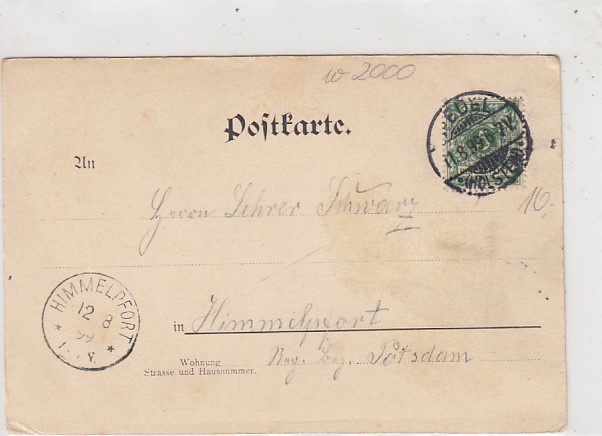 w 2000
Postkarte.
(HOLSTEIN)
An
Herrn Lehrer Schwarz
10,-
HIMMELPFORT
12 8
99
V.
in Himmelpfort
Wohnung
Strasse und Hausnummer.
Reg. Bez. Potsdam